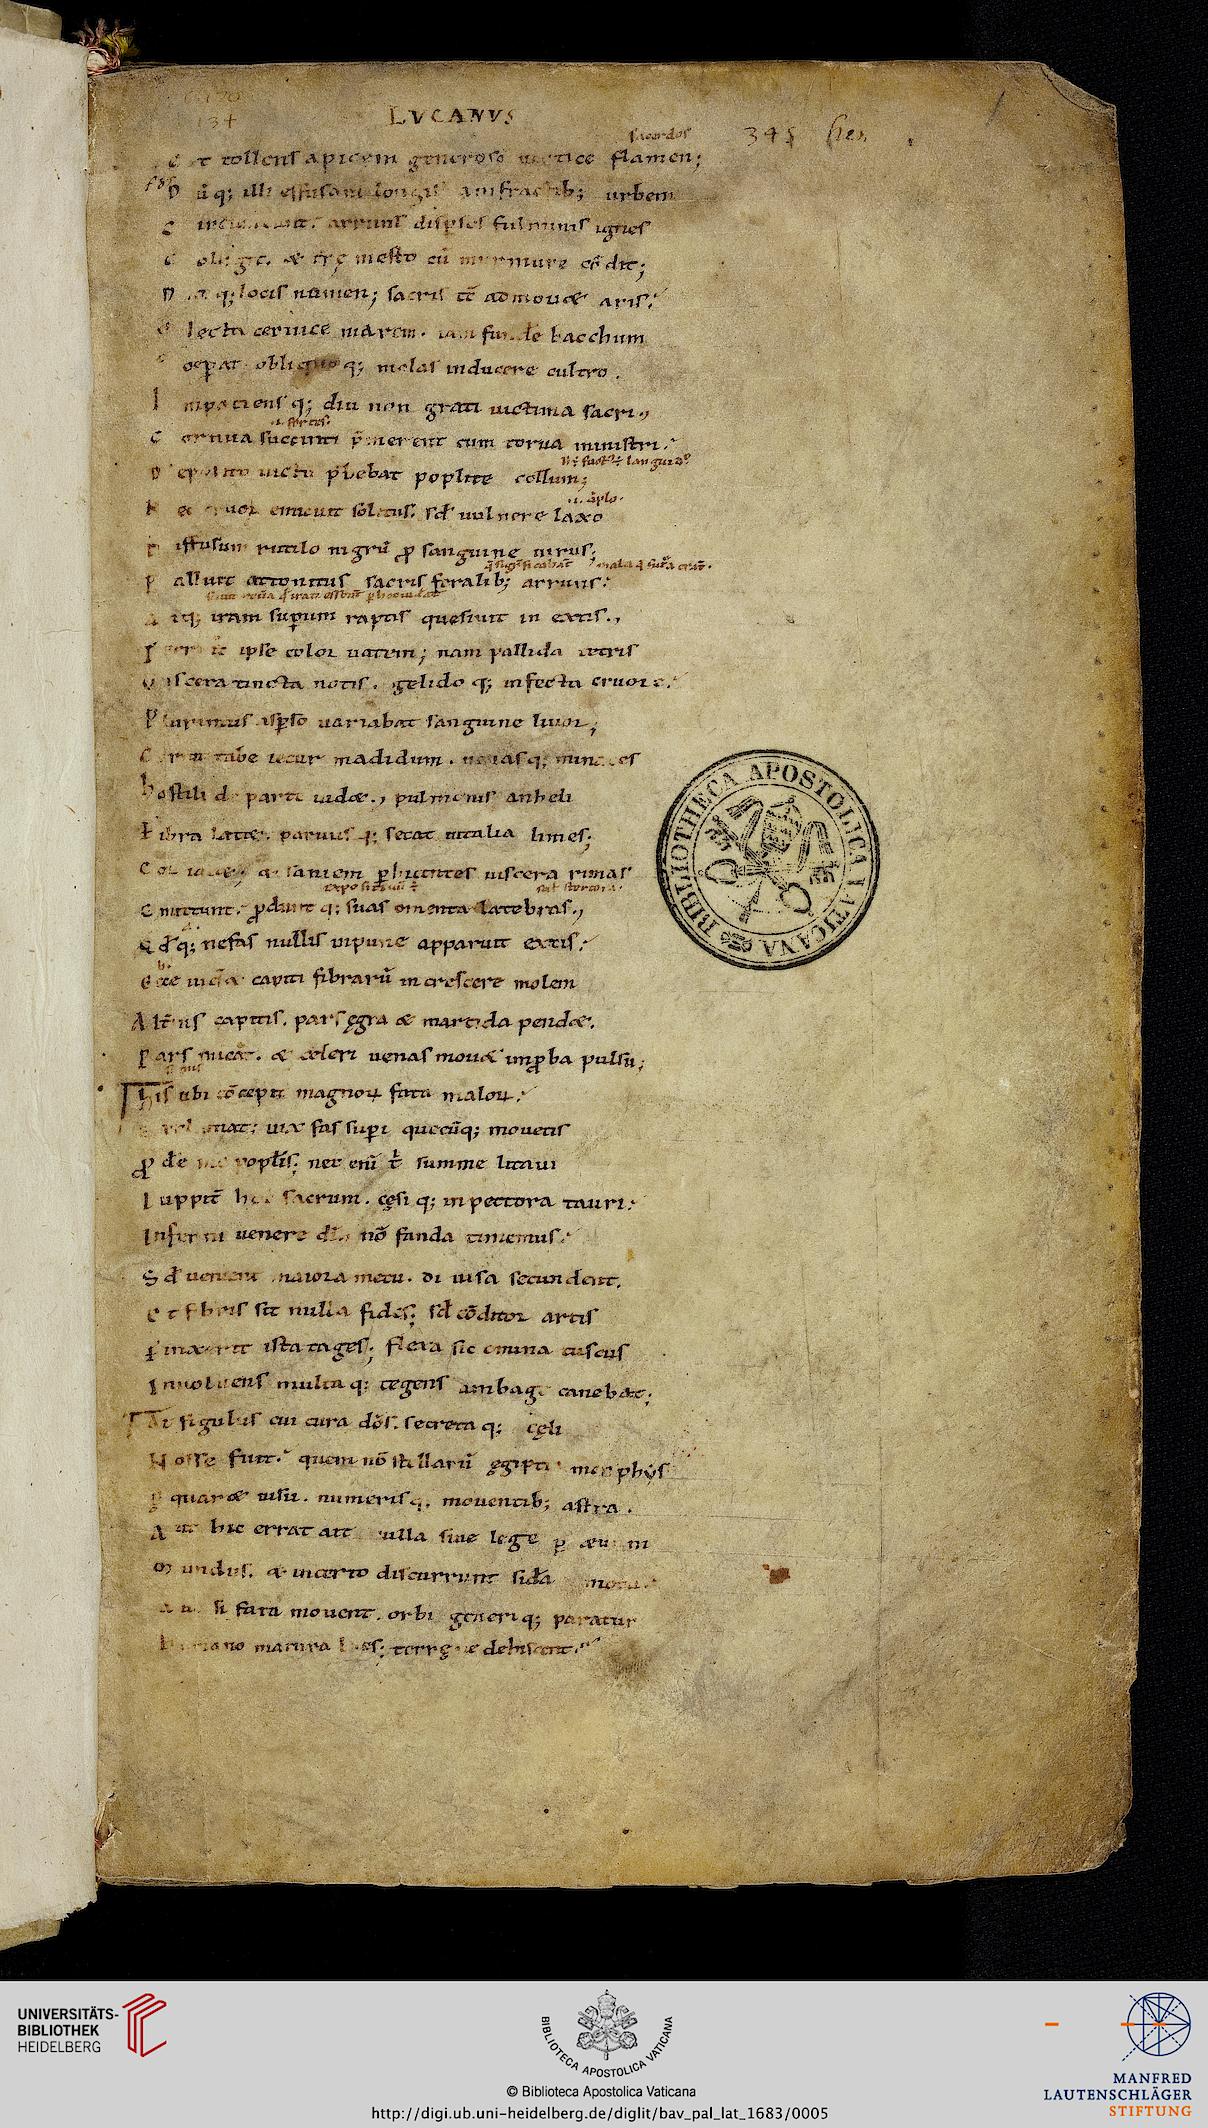 134
LVCANVS
345
sacerdos
Et tollens apicem generoso uertice flamen;
Dūq; illi effusam longis anfractib; urbem
arruns disp̄sos fulminis ignes
Collig& . & t̄rę mesto cū murmure cōdit;
Datq; locis numen; sacris tē̄ admou& aris.
Electa ceruice marem . iam fundere bacchum
Cep̄at obliquoq; molas inducere cultro .
Inpatiensq; diu non grati uictima sacri.,
Cornua succincti p̄merent cum torua ministri.
Deposito uictū p̄bebat poplite collum;
Nec cruor emicuit solitus. sed uulnere laxo
Diffusum rutilo nigrū p̄ sanguine uirus;
Palluit attonitus sacris feralib; arruns.
Atq; iram sup̄um raptis quesiuit in extis.,
Terruit ipse color uatem; nam pallida tetris
Viscera tincta notis . gelidoq; infecta cruore.
Plurimus asp̄so uariabat sanguine liuor;
Cernit tabe iecur madidum . uenasq; minaces
hostili de parte uid&., pulmonis anheli
Fibra latet. paruusq; secat uitalia limes;
Cor iacet; & saniem p̄ hiantes uiscera rimas
Emittunt. p̄duntq; suas omenta latebras.,
Qdq; nefas nullis inpune apparuit extis.
Ecce uid& capiti fibrarū increscere molem
Alt̄ius capitis. pars ęgra & marcida pend&.
Pars micat. & celeri uenas mou& inproba pulsu;
His ubi cōcepit magnoꝝ fata maloꝝ.
uix fas sup̄i quecūq; mouetis
Prode me popl̄is; nec enī t̄ summe litaui
Iuppit̄ hoc sacrum . cęsiq; in pectora tauri.
Inferni uenere dī., nō fanda timemus.
Sed uenient maiora metu . di uisa secundent.
Et fibris sit nulla fides; sed cōditor artis
Finxerit ista tages; flexa sic omina tuscus
Inuoluens multaq; tegens ambage canebat;
At figulus cui cura dōs. secretaq; cęli
Nosse fuit. quem nō stellarū ęgiptia memphys
Equar& uisu . numerisq; mouentib; astra .
Aut hic errat ait ulla sine lege p̄ æuum
Mundus. & incerto discurrunt sidera motu.
Aut si fata mouent . orbi generiq; paratur
Humano matura lues; terręne dehiscent.
BIBLIOTHECA APOSTOLICA VATICANA
UNIVERSITÄTS-
BIBLIOTHEK
HEIDELBERG
BIBLIOTECA APOSTOLICA VATICANA
© Biblioteca Apostolica Vaticana
http://digi.ub.uni-heidelberg.de/diglit/bav_pal_lat_1683/0005
MANFRED
LAUTENSCHLÄGER
STIFTUNG